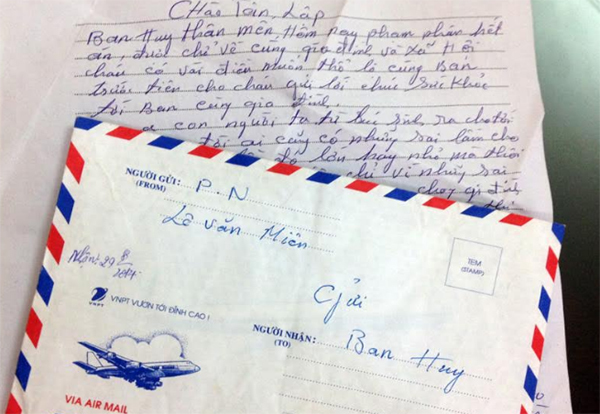 Chào Tân Lập
Ban Huy thân mến, Hôm nay phạm nhân hết
án, được trở về cùng gia đình và Xã Hội
cháu có vài điều muốn thổ lộ cùng Ban
trước tiên cho cháu gửi lời chúc sức khỏe
tới Ban cùng gia đình.
con người ta từ lúc sinh ra cho tới
tới ai cũng có những sai lầm cho
lớn hay nhỏ mà thôi
chỉ vì những sai
gia đình
NGƯỜI GỬI: P.N
(FROM)
Lê Văn Miên
TEM
(STAMP)
Nhận: 29/8/2014
VNPT
VNPT VƯƠN TỚI ĐỈNH CAO !
Gửi
NGƯỜI NHẬN: Ban Huy
(TO)
VIA AIR MAIL